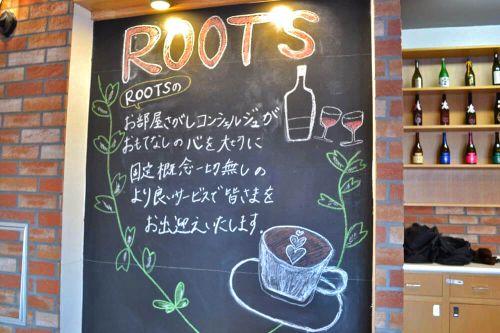 ROOTS
ROOTSの
お部屋さがしコンシェルジュが
おもてなしの心を大切に
固定概念一切無しの
より良いサービスで皆さまを
お出迎えいたします。